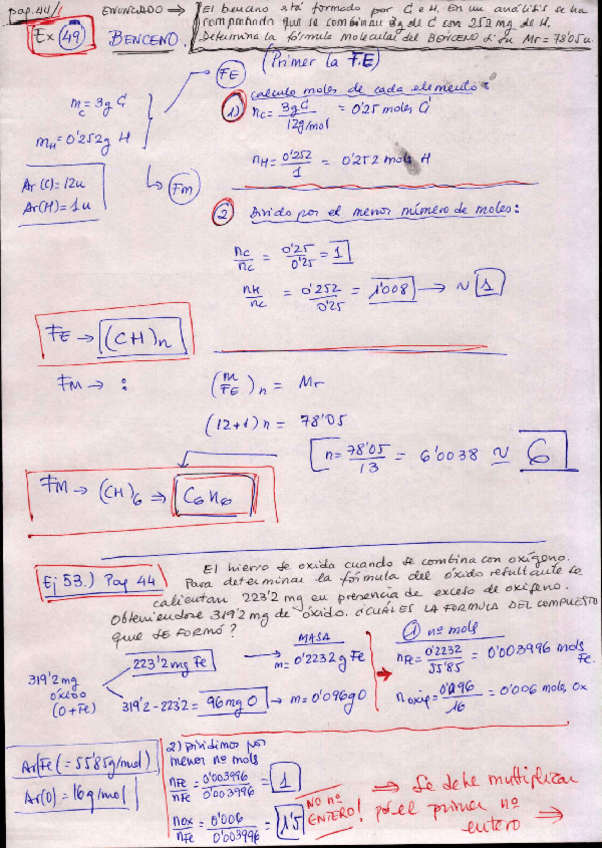 pag.44/ ENUNCIADO → El benceno está formado por C e H. En un análisis se ha
Ex 49 BENCENO. comprobado que se combinan 3g de C con 252 mg de H.
Determina la fórmula molecular del BENCENO si su Mr = 78'05u.
FE (Primer la F.E)
1) calculo moles de cada elemento:
mC = 3g C
nC = 3g C / 12g/mol = 0'25 moles C
mH = 0'252g H
nH = 0'252 / 1 = 0'252 mols H
Ar(C) = 12u
Ar(H) = 1u
Fm
2 Divido por el menor número de moles:
nC/nC = 0'25/0'25 = 1
nH/nC = 0'252/0'25 = 1'008 → ~ 1
FE → (CH)n
FM → : (m FE)n = Mr
(12+1)n = 78'05
n = 78'05/13 = 6'0038 ≈ 6
FM → (CH)6 ⇒ C6H6
Ej 53.) Pag 44 El hierro se oxida cuando se combina con oxígeno.
Para determinar la fórmula del óxido resultante se
calientan 223'2 mg en presencia de exceso de oxífeno.
Obteniendose 319'2 mg de óxido. ¿CUÁL ES LA FORMULA DEL COMPUESTO
que SE FORMÓ?
319'2 mg
OXIDO
(O+Fe)
223'2 mg Fe → MASA m = 0'2232 g Fe
319'2-223'2 = 96 mg O → m = 0'096g O
1 nº mols
nFe = 0'2232/55'85 = 0'003996 mols Fe.
n oxig = 0'096/16 = 0'006 mols Ox
Ar(Fe) = 55'85g/mol)
Ar(O) = 16 g/mol
2) Dividimos por
menor nº mols
nFe/nFe = 0'003996/0'003996 = 1
nox/nFe = 0'006/0'003996 = 1'5
NO nº
ENTERO!
⇒ Se debe multiplicar
por el primer nº
entero ⇒